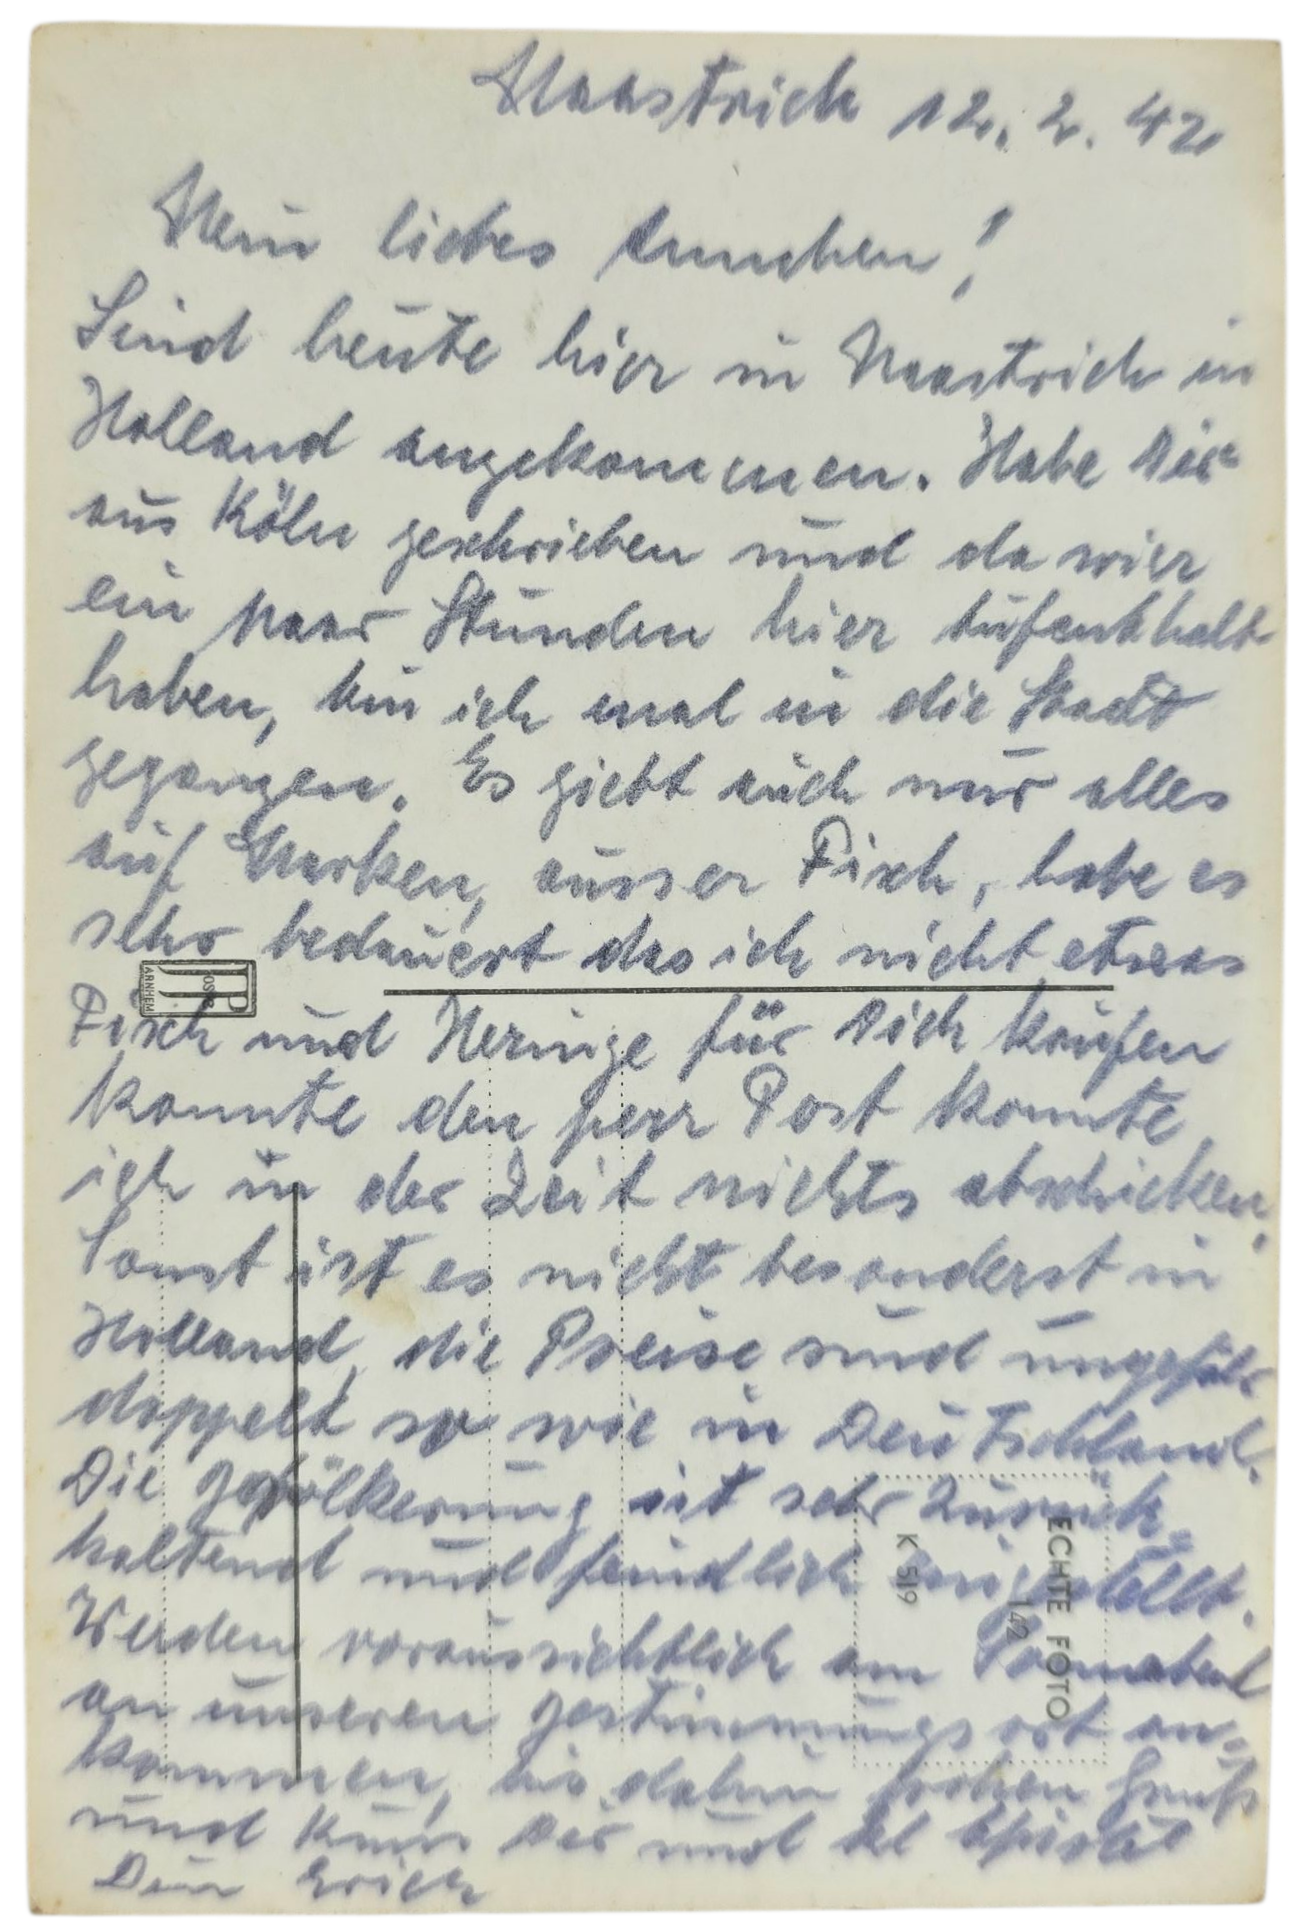 Maastrich 12. 2. 42
Mein liebes Annchen!
Sind heute hier in Maastrich in
Holland angekommen. Habe Dir
aus Köln geschrieben und da wier
ein paar Stunden hier Aufenthalt
haben, bin ich mal in die Stadt
gegangen. Es giebt auch nur alles
auf Marken, ausser Fisch, habe es
sehr bedauert das ich nicht etwas
Fisch und Heringe für Dich kaufen
konnte den perr Post konnte
ich in der Zeit nichts abschicken,
Sonst ist es nicht besonderst in
Holland, die Preise sind ungefähr
doppelt so wie in Deutschland.
Die Bevölkerung ist sehr zurück=
haltend und feindlich eingestellt.
Werden voraussichtlich am Sonnabend
an unseren Bestimmungsort an=
kommen, bis dahin frohen Gruß
und Kuss Dir und
Dein Erich
JOSPE
ARNHEM
ECHTE FOTO
142
K 519